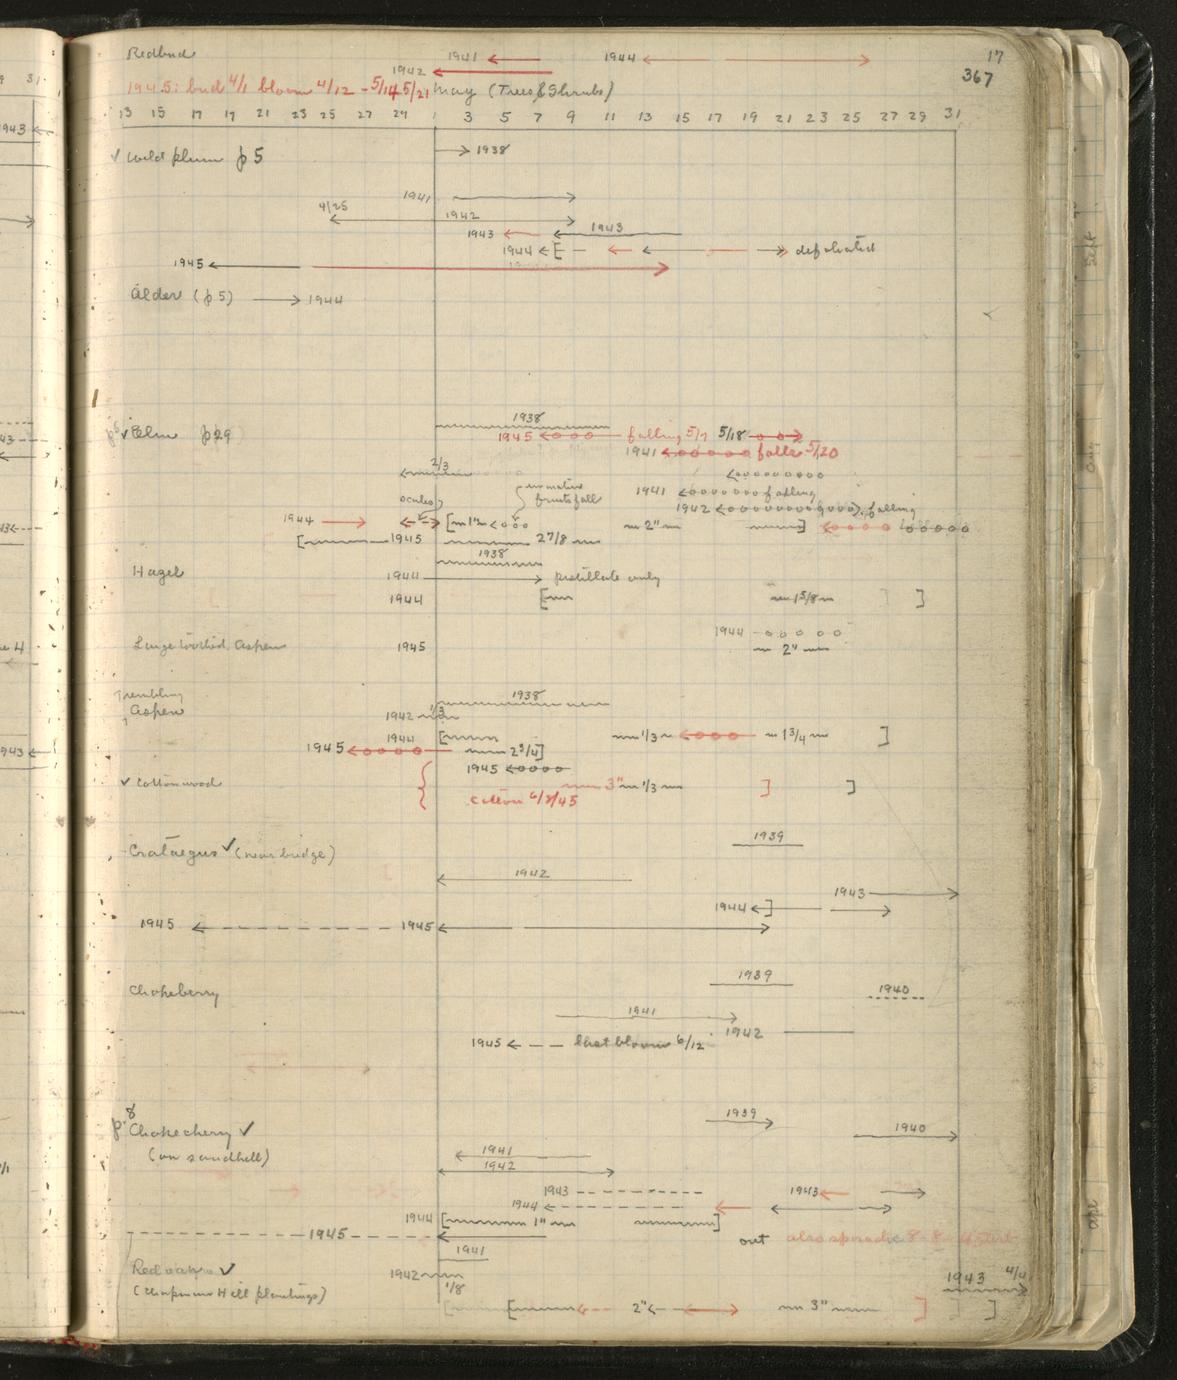 Redbud 1941 1944 17
1942 367
1945: bud 4/1 bloom 4/12 - 5/14 5/21 May (Trees & Shrubs)
13 15 17 19 21 23 25 27 29 1 3 5 7 9 11 13 15 17 19 21 23 25 27 29 31
✓ Wild plum p 5 1938
1941
4/25 1942
1943 1943
1944 [ defoliated
1945
Alder (p 5) 1944
1938
✓ Elm p29 1945 falling 5/7 5/18
1941 falls 5/20
2/3
scales immature fruits fall 1941 falling
1942 falling
1944 [ 1" 2" ]
[ 1945 2 7/8
1938
Hazel 1944 pistillate only
1944 [ 1 5/8 ]
1944
Large toothed Aspen 1945 2"
Trembling 1938
Aspen 1942 1/3
1944 [ 1/3 1 3/4 ]
1945 2 3/4 ]
1945
✓ Cottonwood 3" 1/3 ] ]
cotton 6/8/45
1939
Crataegus ✓ (near bridge)
1942
1943
1944 ]
1945 1945
1939
Chokeberry 1940
1941
1942
1945 last bloom 6/12
p.8 1939
Chokecherry ✓ 1940
(on sandhill) 1941
1942
1943 1943
1944
1944 [ 1" ]
1945 out also spread
1941
Red oak ✓ 1942 1943 4/4
(Chapman Hill plantings) 1/8
[ [ 2" 3" ] ]